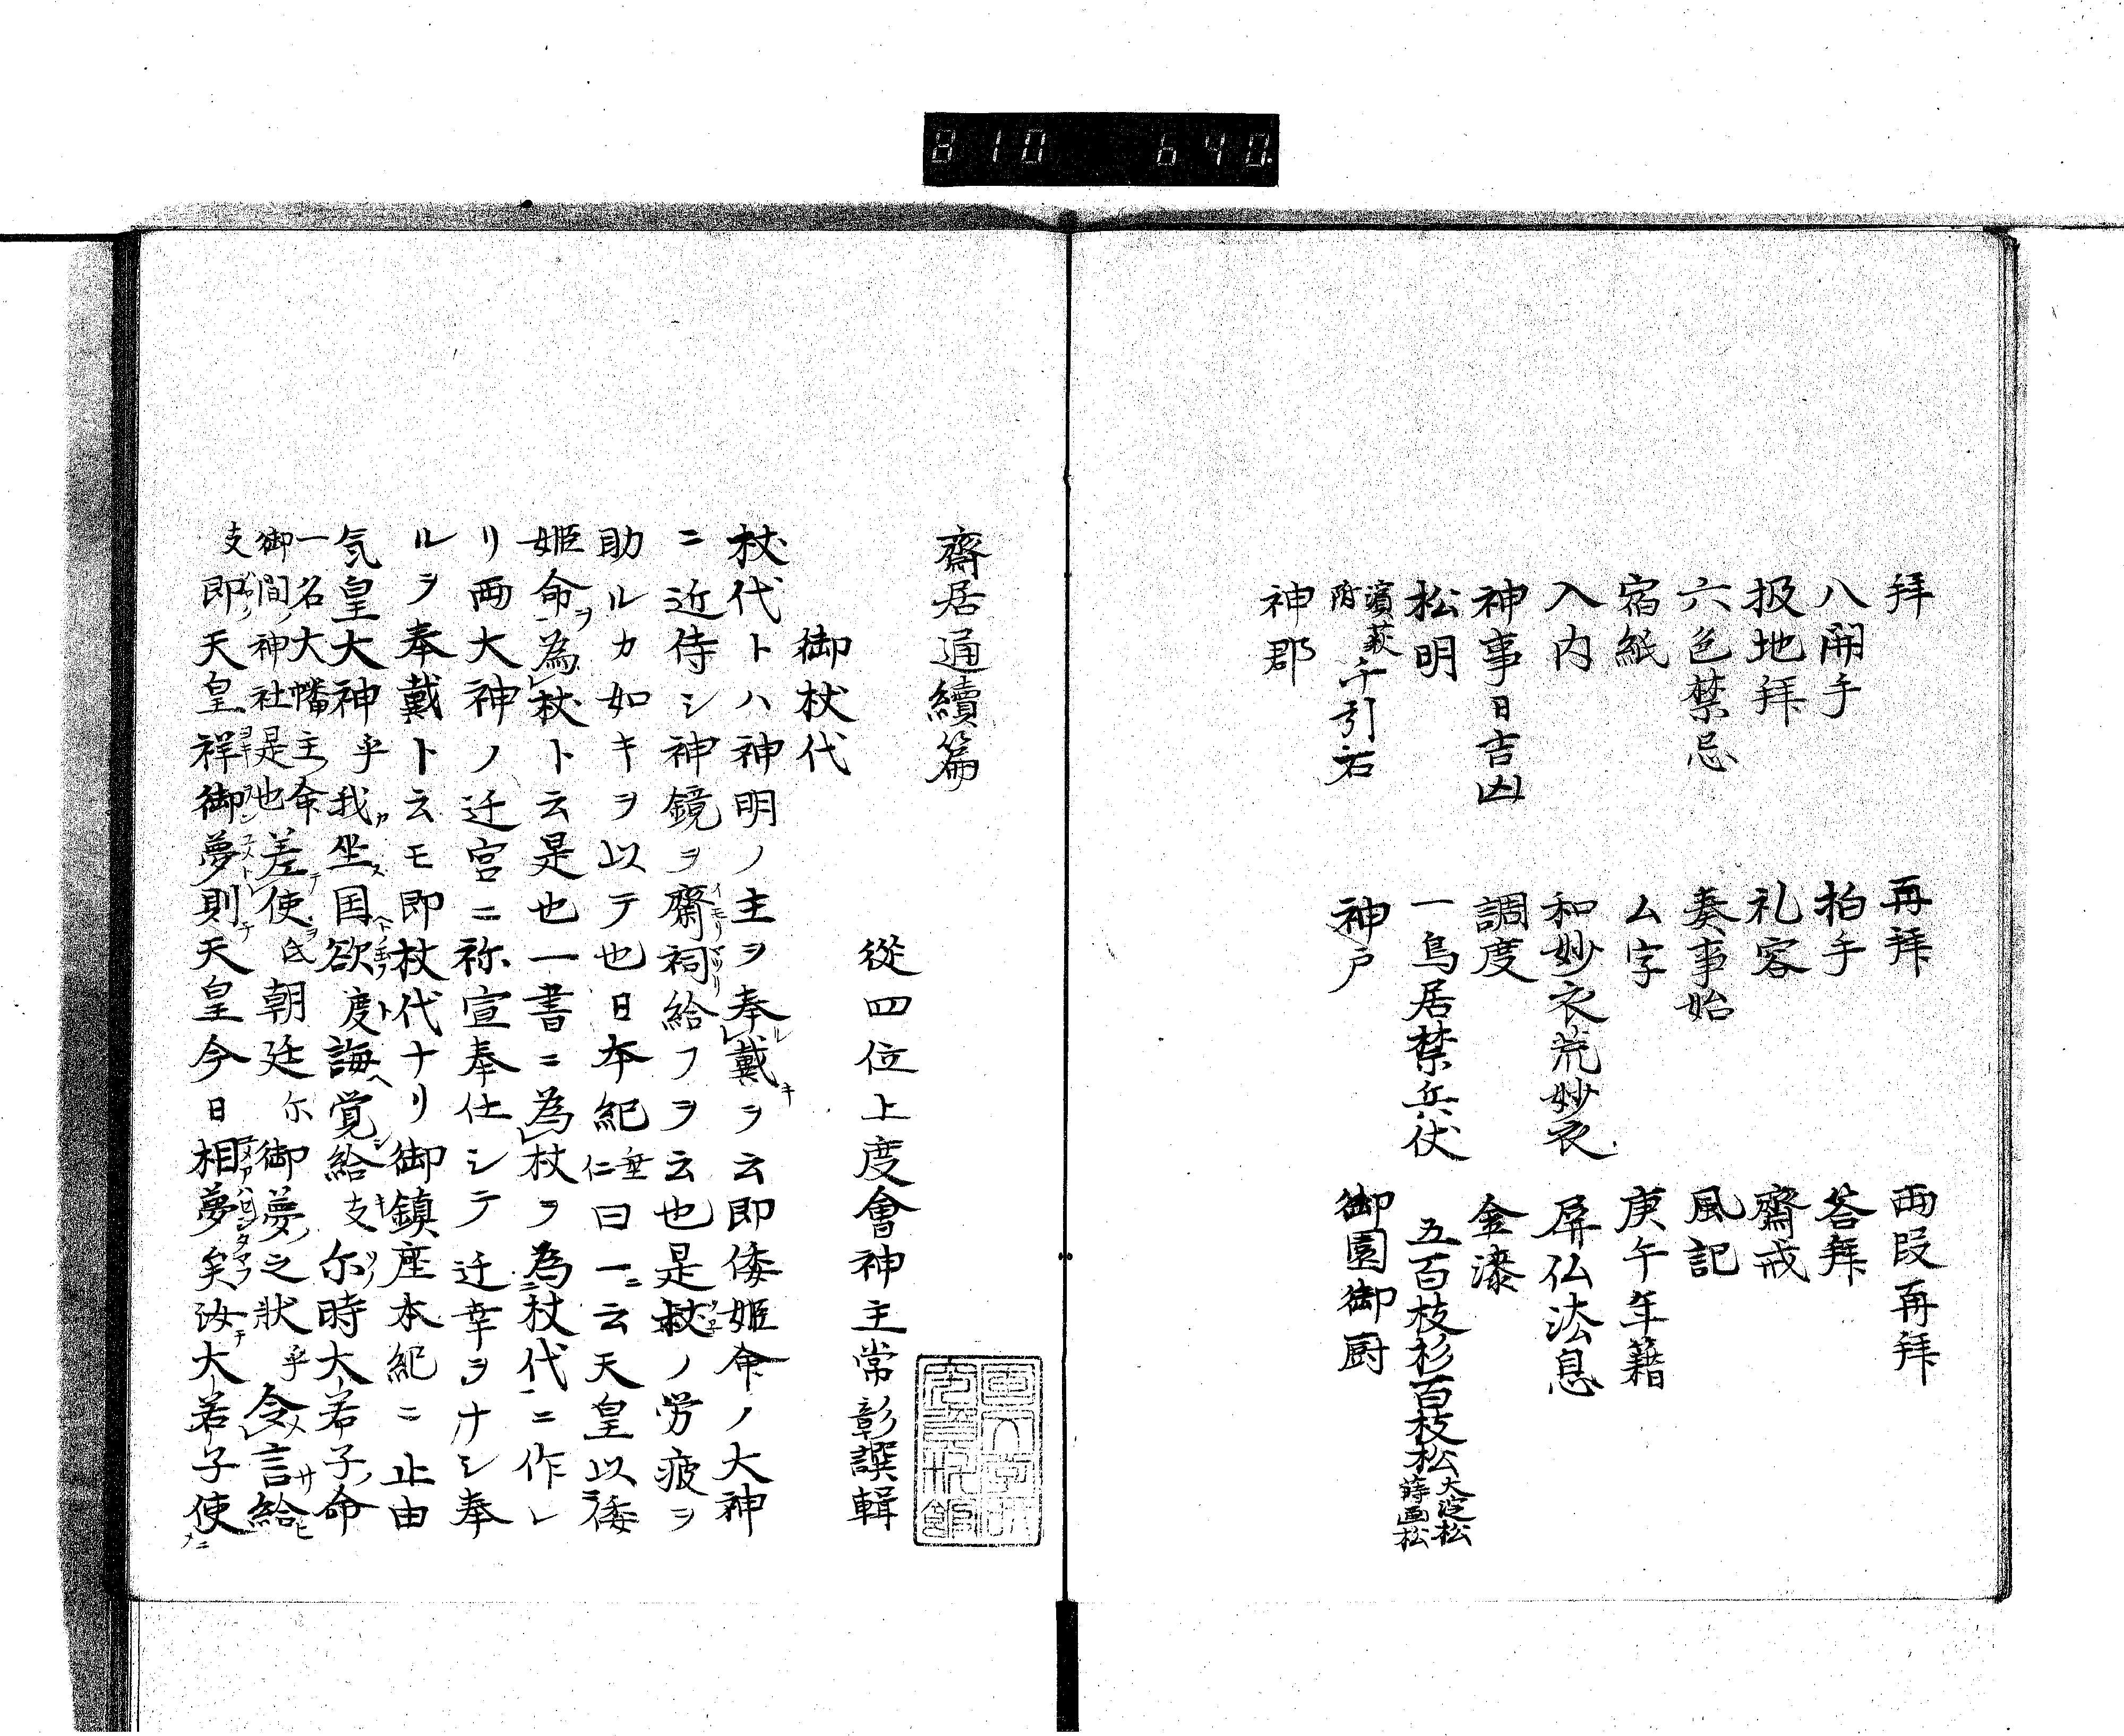 810 640.
拜 再拜 両段再拜
八開手 拍手 荅拜
扱地拜 礼容 齋戒
六色禁忌 奏事始 風記
宿紙 ム字 庚午年籍
入内 和妙衣荒妙衣 屏仏法息
神事日吉凶 調度 金漆
松明 一鳥居禁兵仗 五百枝杉百枝松 大淀松 蒔画松
附濱荻 千引石 神戸 御園御厨
神郡
齋居通續篇
從四位上度會神主常彰譔輯
御杖代
杖代トハ神明ノ主ヲ奉戴ヲ云即倭姫命ノ大神
ニ近侍シ神鏡ヲ齋祠給フヲ云也是杖ノ労疲ヲ
助ルカ如キヲ以テ也日本紀垂仁曰一云天皇以倭
姫命為杖ト云是也一書ニ為杖ヲ為杖代ニ作レ
リ両大神ノ迁宮ニ祢宣奉仕シテ迁幸ヲナシ奉
ルヲ奉戴ト云モ即杖代ナリ御鎮座本紀ニ止由
気皇大神乎我坐国欲度誨覚給支尓時大若子命
一名大幡主命 御間神社是也 差使氐朝廷尓御夢之状乎令言給
支即天皇祥御夢則天皇今日相夢矣汝大若子使